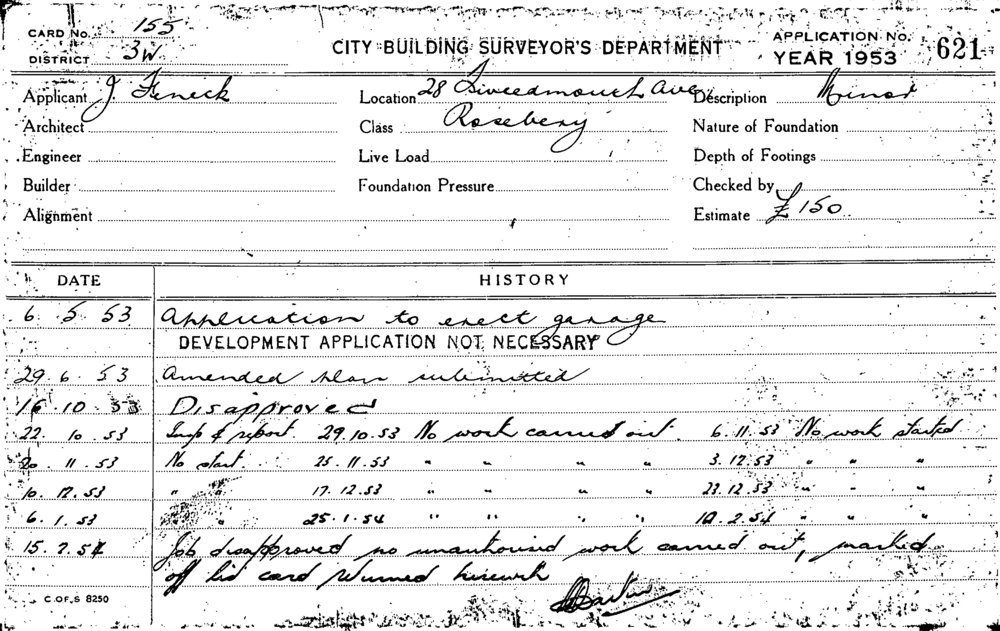 CARD No. 155
DISTRICT 3W
CITY BUILDING SURVEYOR'S DEPARTMENT
APPLICATION No. 621
YEAR 1953
Applicant J. Feneck Location 28 Tweedmouth Ave Description Minor
Architect Class Rosebery Nature of Foundation
Engineer Live Load Depth of Footings
Builder Foundation Pressure Checked by
Alignment Estimate £150
DATE HISTORY
6. 5 53 Application to erect garage
DEVELOPMENT APPLICATION NOT NECESSARY
29. 6. 53 Amended plan submitted
16. 10. 53 Disapproved
22. 10. 53 Insp & report. 29.10.53 No work carried out. 6.11.53 No work started
20. 11. 53 No start. 25.11.53 " " " " 3.12.53 " " "
10. 12. 53 " " 17.12.53 " " " " 23.12.53 " " "
6. 1. 53 " " 25.1.54 " " " " 10.2.54 " " "
15. 2. 54 Job disapproved no unauthorised work carried out, marked
off card returned herewith
C.OF.S 8250